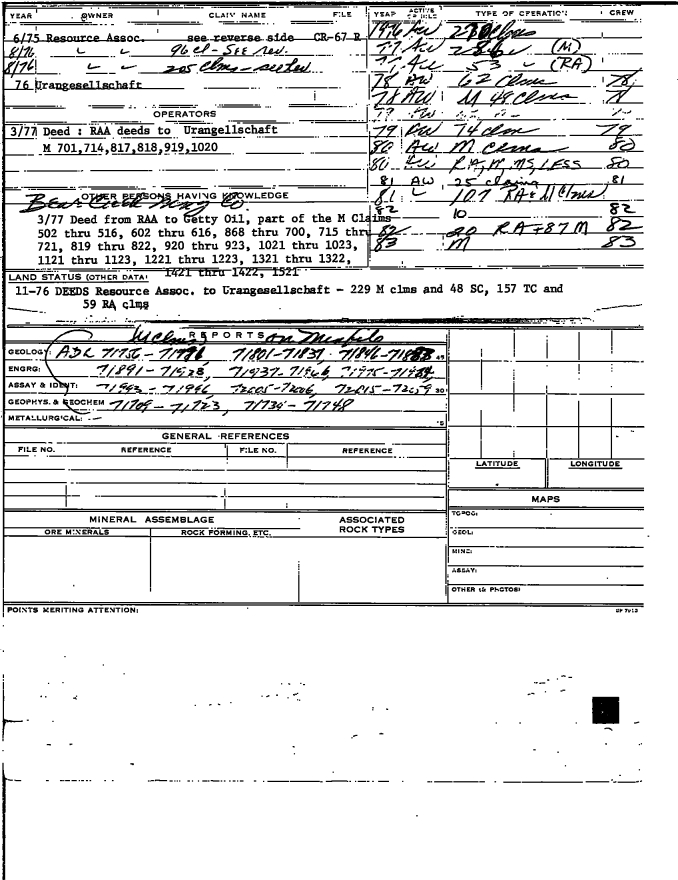 YEAR OWNER CLAIM NAME FILE
6/75 Resource Assoc. see reverse side CR-67 R
8/76 " " 96 cl - See rev.
8/76 " " 205 Clms - see rev
76 Urangesellschaft
OPERATORS
3/77 Deed : RAA deeds to Urangellschaft
M 701,714,817,818,919,1020
OTHER PERSONS HAVING KNOWLEDGE
Bear Creek Mng Co
3/77 Deed from RAA to Getty Oil, part of the M Claims
502 thru 516, 602 thru 616, 868 thru 700, 715 thru
721, 819 thru 822, 920 thru 923, 1021 thru 1023,
1121 thru 1123, 1221 thru 1223, 1321 thru 1322,
1421 thru 1422, 1521
LAND STATUS (OTHER DATA)
11-76 DEEDS Resource Assoc. to Urangesellschaft - 229 M clms and 48 SC, 157 TC and
59 RA clms
YEAR ACTIVE TYPE OF OPERATION CREW
1976 AW Clms
77 AW 286 (M)
77 AW 53 (RA)
78 AW 62 Clms 78
78 AW M 48 Clms 78
79 AW 74 clm 79
80 AW M Clms 80
80 AW RA, M, MS, LESS 80
81 AW 25 claims 81
81 107 RA & M Clms
82 10 82
82 20 RA + 87 M 82
83 M 83
REPORTS
M Clms on
GEOLOGY: ADL 71756 - 71796 71801-71837 71846-71883
ENGRG: 71891-71928 71937-71966 71975-71984
ASSAY & IDENT: 71993-71996 72005-72006, 72015-72059 30
GEOPHYS. & GEOCHEM 71709-71723, 71734-71748
METALLURGICAL: 15
GENERAL REFERENCES
FILE NO. REFERENCE FILE NO. REFERENCE
LATITUDE LONGITUDE
MAPS
MINERAL ASSEMBLAGE ASSOCIATED ROCK TYPES
ORE MINERALS ROCK FORMING, ETC.
TOPOG:
GEOL:
MINE:
ASSAY:
OTHER (& PHOTOS)
POINTS MERITING ATTENTION: